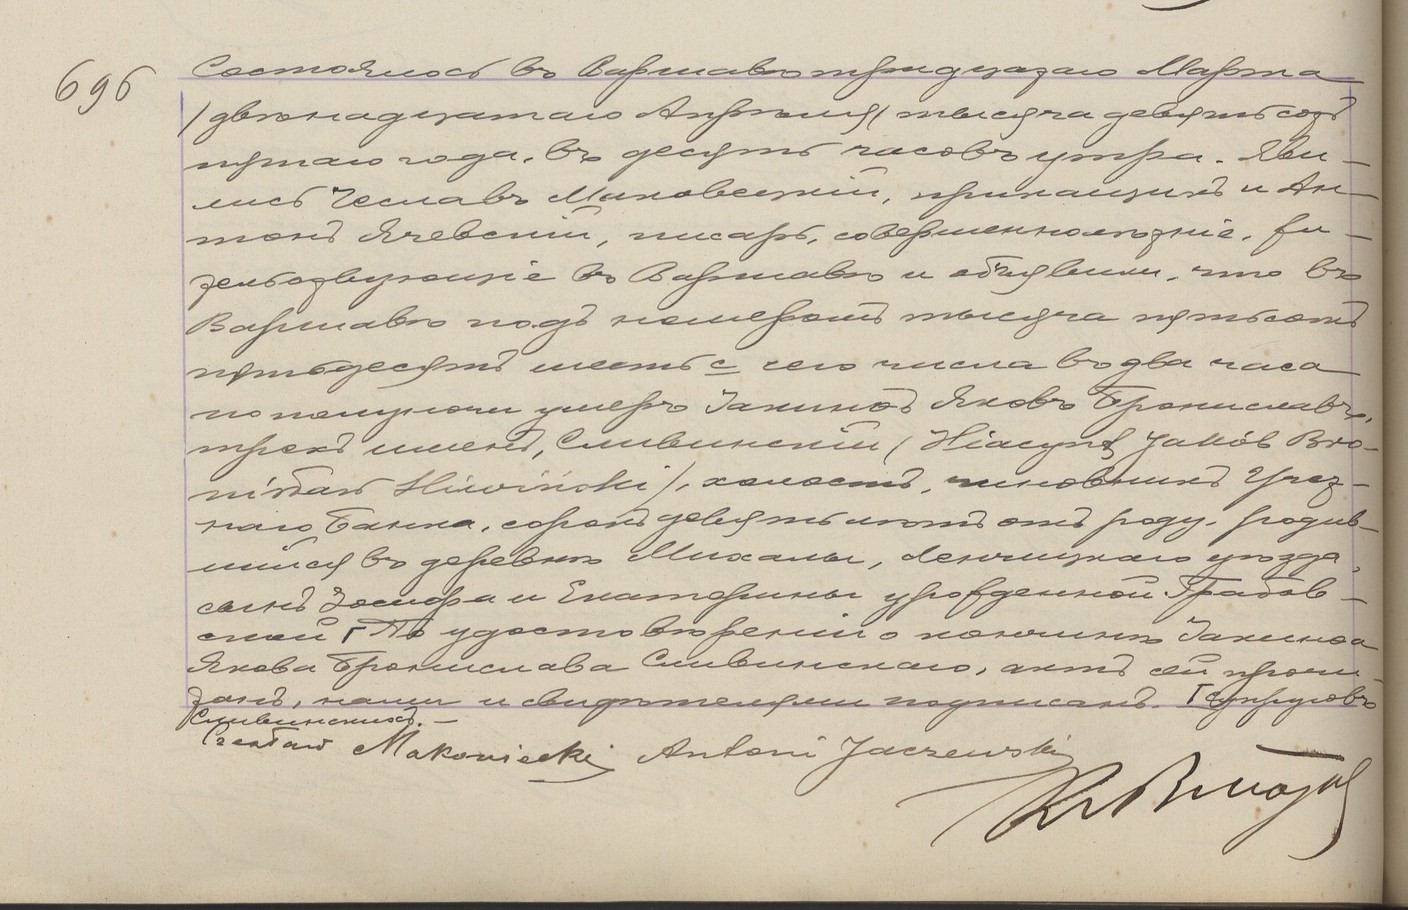 696
Состоялось въ Варшавѣ тридцатаго Марта
/двѣнадцатаго Апрѣля/ тысяча девятьсотъ
пятаго года, въ десять часовъ утра. Яви-
лись Чеславъ Маковецкій, прикащикъ и Ан-
тонъ Ячевскій, писарь, совершеннолѣтніе, жи-
тельствующіе въ Варшавѣ и объявили, что въ
Варшавѣ подъ номеромъ тысяча пятьсотъ
пятьдесятъ шесть с сего числа въ два часа
по полуночи умеръ Іакинѳъ Яковъ Брониславъ,
трехъ именъ, Сливинскій /Hiacynt Jakób Bro-
nisław Śliwiński/, холостъ, чиновникъ Учет-
наго Банка, сорокъ девять лѣтъ отъ роду, родив-
шійся въ деревнѣ Михалы, Ленчицкаго уѣзда,
сынъ Іосифа и Екатерины урожденной Грабов-
ской Г По удостовѣреніи о кончинѣ Іакинѳа
Якова Бронислава Сливинскаго, актъ сей прочи-
танъ, нами и свидѣтелями подписанъ. Г супруговъ
Сливинскихъ.-
Czesław Makowiecki Antoni Jaczewski